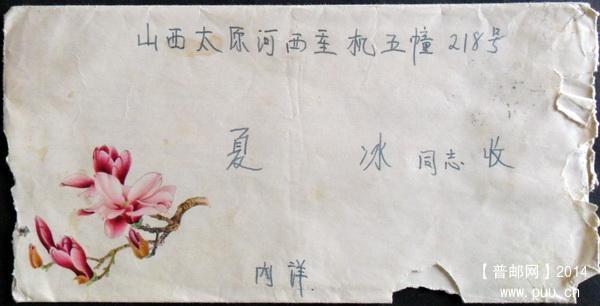 山西太原河西重机五幢218号
夏 冰 同志 收
内详
【普邮网】2014
www.puu.cn